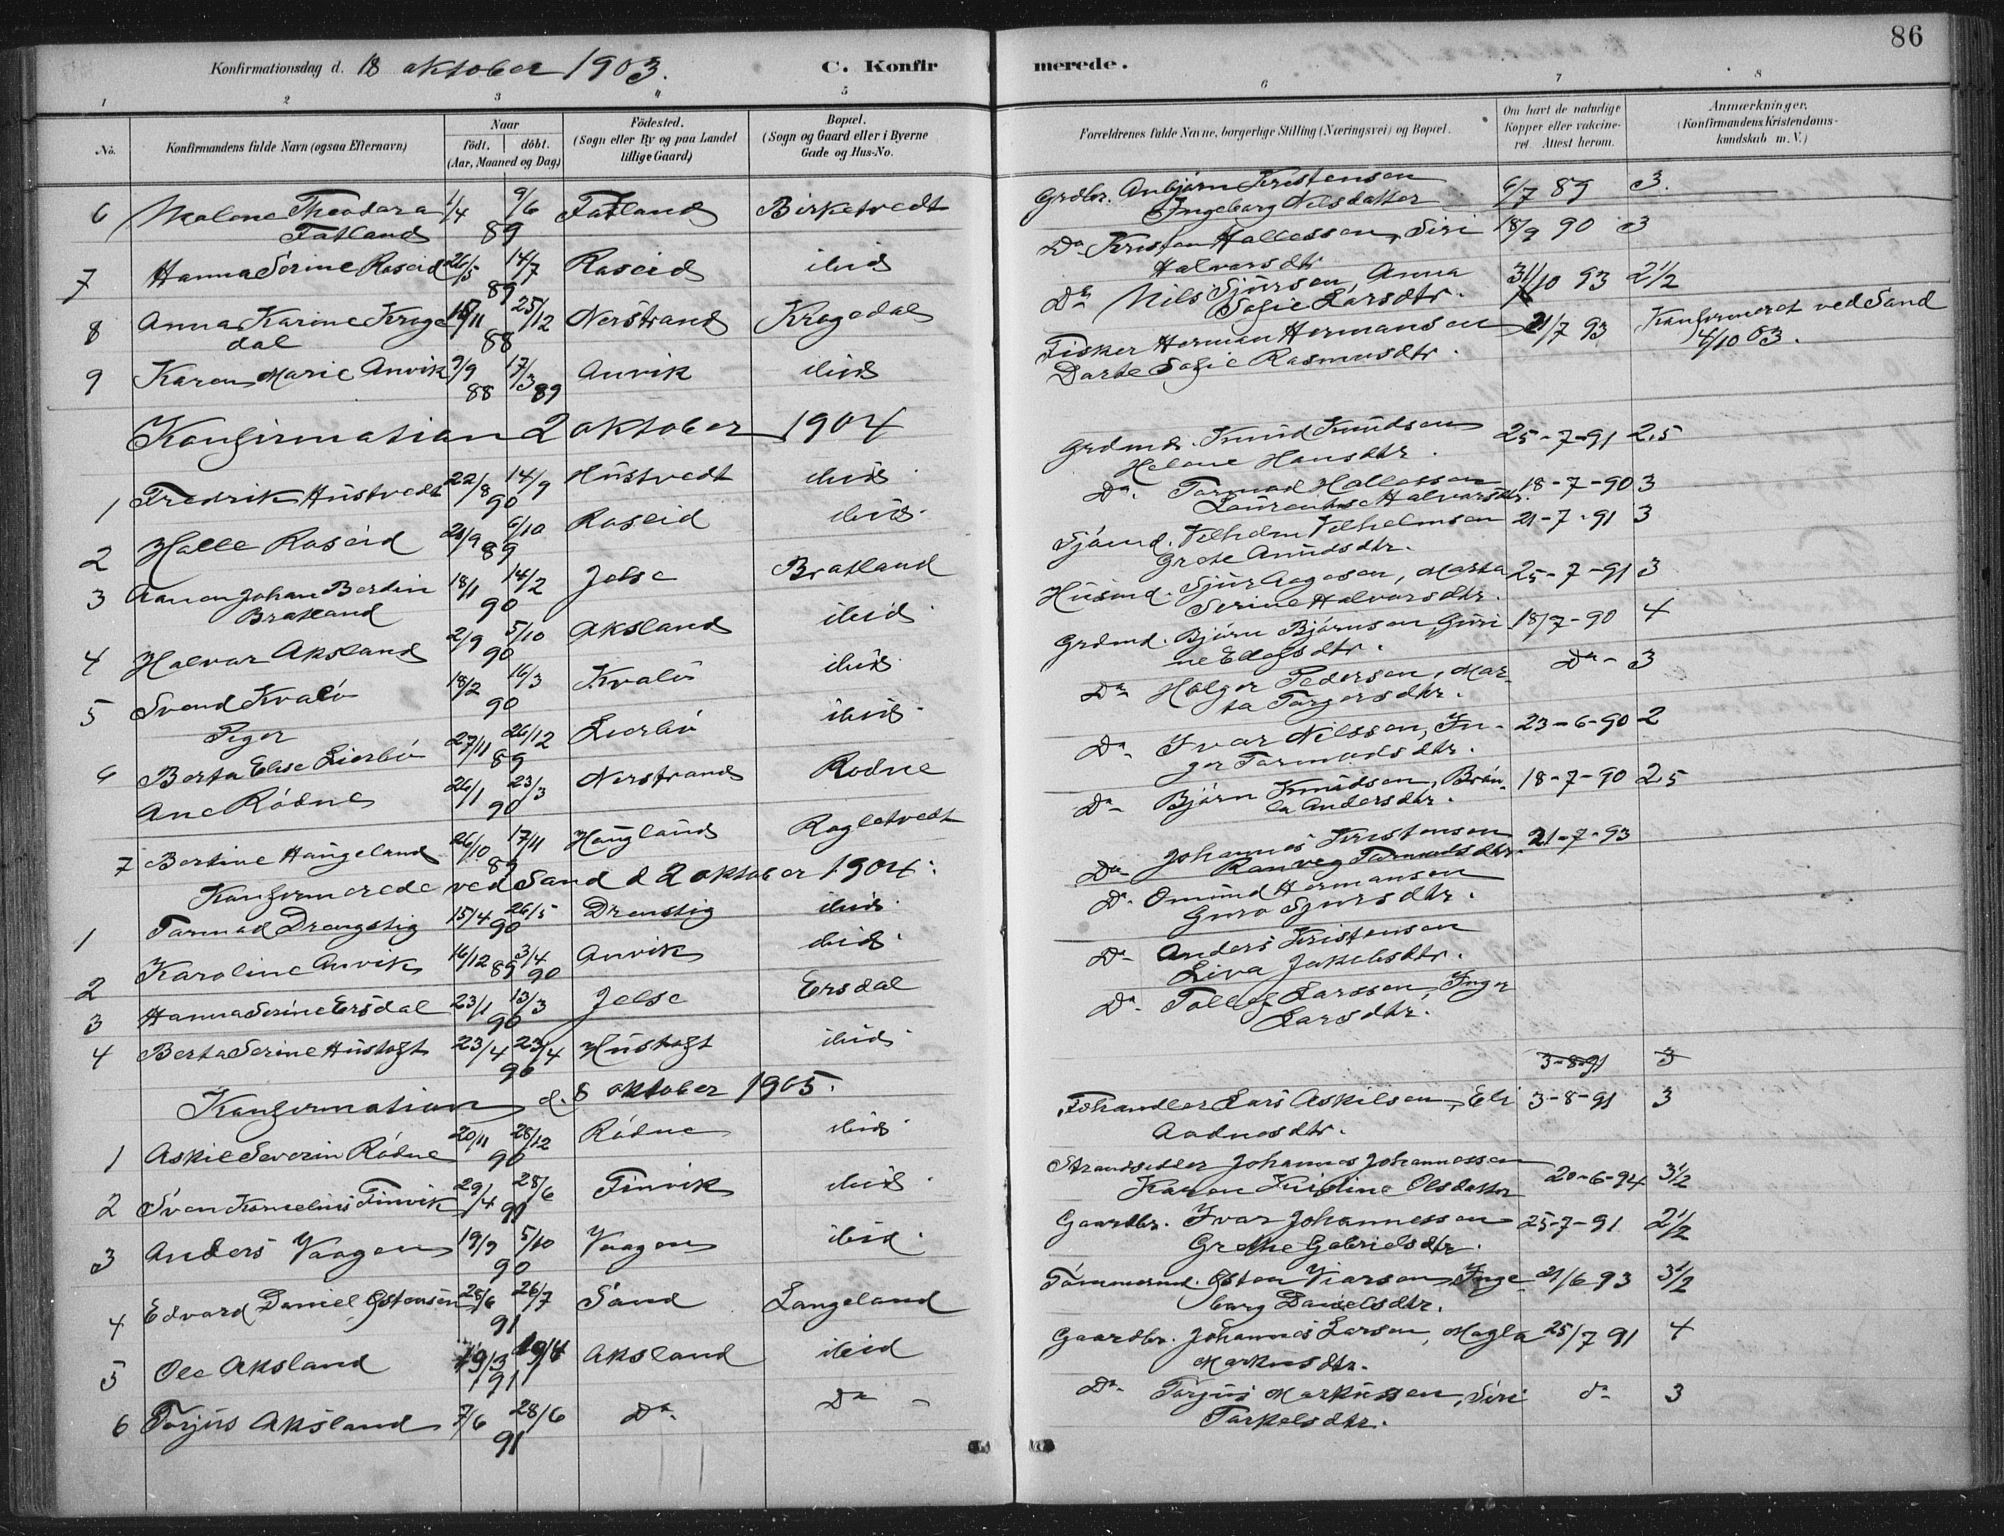 86
Konfirmationsdag d. 18 oktober 1903.
C. Konfirmerede.
1 2 3 4 5 6 7 8
No.
Konfirmandens fulde Navn (ogsaa Efternavn)
Naar
födt. döbt.
(Aar, Maaned og Dag)
Födested.
(Sogn eller By og paa Landet
tillige Gaard)
Bopæl.
(Sogn og Gaard eller i Byerne
Gade og Hus-No.
Forældrenes fulde Navne, borgerlige Stilling (Næringsvei) og Bopæl.
Om havt de naturlige
Kopper eller vakcine-
ret. Attest herom.
Anmærkninger.
(Konfirmandens Kristendoms-
kundskab m. V.)
6 Malene Theodora 1/4 9/6 Fatland Birketvedt Grdbr. Anbjørn Kristensen 6/7 89 3.
Fatland 89 Ingeborg Nilsdatter
7 Hanna Serine Roseid 26/5 14/7 Roseid ibid Do Kristen Hallessen, Siri 18/9 90 3
89 Halvorsdtr
8 Anna Karine Kroge 15/11 25/12 Nerstrand Krogedal Do Nils Sjursen, Anna 31/10 93 2 1/2
dal 88 Sofie Larsdtr.
9 Karen Marie Anvik 9/9 17/3 Anvik ibid Fisker Herman Hermansen 21/7 93 Konfirmeret ved Sand
88 89 Dorte Sofie Rasmusdtr. 4/10 03.
Konfirmation 2 oktober 1904
1 Fredrik Hustvedt 22/8 14/9 Hustvedt ibid Grdmd. Knud Knudsen 25-7-91 2,5
90 Helene Hansdtr.
2 Halle Roseid 21/9 6/10 Roseid ibid. Do. Tormod Hallessen 18-7-90 3
89 Laurentse Halvorsdtr.
3 Aanen Johan Berdin 18/1 14/2 Jelse Bratland Sjømd. Vilhelm Vilhelmsen 21-7-91 3
Bratland 90 Grete Anundsdtr.
4 Halvor Aksland 2/9 5/10 Aksland ibid Husmd. Sjur Aagesen, Marta 25-7-91 3
90 Serine Halvorsdtr.
5 Svend Kvalø 18/2 16/3 Kvalø ibid. Grdmd. Bjørn Bjørnsen, Guri 18/7-90 4
90 ne Ellefsdtr.
Piger
6 Berta Elise Lierbø 27/11 26/12 Lierbø ibid. Do Holger Pedersen, Mar- Do- 3
89 ta Torgersdtr.
Ane Rødne 26/1 23/3 Nerstrand Rødne Do Ivar Nilssen, In- 23-6-90 2
90 ger Tormodsdtr.
7 Bertine Haugeland 26/10 17/11 Haugland Rogletvedt Do- Bjørn Knudsen, Brøn- 18-7-90 2,5
89 la Andersdtr.
Konfirmerede ved Sand d 2 oktober 1904:
1 Tormod Drengstig 15/4 26/5 Drenstig ibid. Do- Johannes Kristensen 21-7-93
90 Ranveg Tormodsdtr.
2 Karoline Anvik 16/12 3/4 Anvik ibid. Do- Omund Hermansen
89 90 Guro Sjursdtr.
3 Hanna Serine Ersdal 23/1 13/3 Jelse Ersdal Do- Anders Kristensen
90 Liva Jakobsdtr.
4 Berta Serine Hustoft 23/4 23/4 Hustoft ibid. Do- Tollef Larssen, Inger
90 Larsdtr.
3-8-91 3
Konfirmation d. 8 oktober 1905.
1 Askil Severin Rødne 20/11 28/12 Rødne ibid. Fehandler Lars Askilsen, Eli 3-8-91 3
90 Aadnesdtr.
2 Sven Kornelius Finvik 29/4 28/6 Finvik ibid. Strandsidder Johannes Johannessen 20-6-94 3 1/2
91 Karen Kristine Olsdatter
3 Anders Vaagen 19/9 5/10 Vaagen ibid. Gaardbr. Ivar Johannessen 25-7-91 2 1/2
90 Grethe Gabrielsdtr.
4 Edvard Daniel Østensen 28/6 26/7 Sand Langeland Tømmermd. Østen Viarsen, Inge 21/6 93 3 1/2
91 borg Danielsdtr.
5 Ole Aksland 19/3 19/4 Aksland ibid Gaardbr. Johannes Larsen, Magla 25/7 91 4
91 Markusdtr.
6 Torjus Aksland 7/6 28/6 Do. Do - Do- Torjus Markussen, Siri do- 3
91 Torkelsdtr.